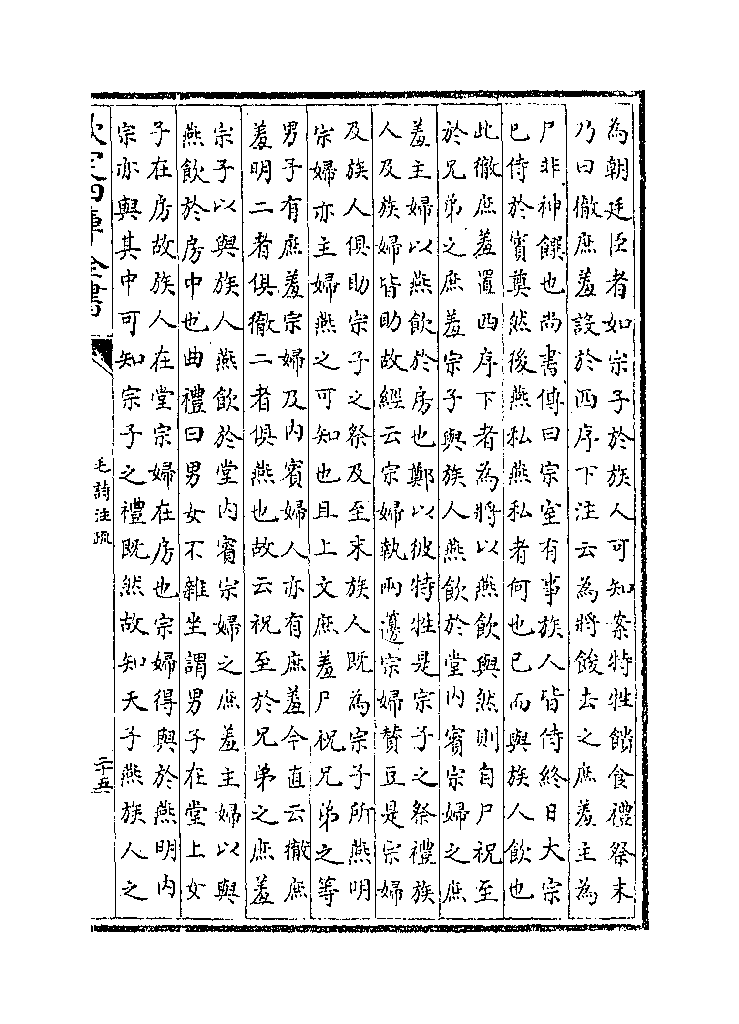 為朝廷臣者如宗子於族人可知案特牲饋食禮祭末
乃曰徹庶羞設於西序下注云為將餕去之庶羞主為
尸非神饌也尚書傳曰宗室有事族人皆侍終日大宗
已侍於賓奠然後燕私燕私者何也已而與族人飲也
此徹庶羞置西序下者為將以燕飲與然則自尸祝至
於兄弟之庶羞宗子與族人燕飲於堂内賓宗婦之庶
羞主婦以燕飲於房也鄭以彼特牲是宗子之祭禮族
人及族婦皆助故經云宗婦執兩籩宗婦贊豆是宗婦
及族人俱助宗子之祭及至末族人既為宗子所燕明
宗婦亦主婦燕之可知也且上文庶羞尸祝兄弟之等
男子有庶羞宗婦及内賓婦人亦有庶羞今直云徹庶
羞明二者俱徹二者俱燕也故云祝至於兄弟之庶羞
宗子以與族人燕飲於堂内賓宗婦之庶羞主婦以與
燕飲於房中也曲禮曰男女不雜坐謂男子在堂上女
子在房故族人在堂宗婦在房也宗婦得與於燕明内
宗亦與其中可知宗子之禮既然故知天子燕族人之
欽定四庫全書
毛詩注疏
二十五